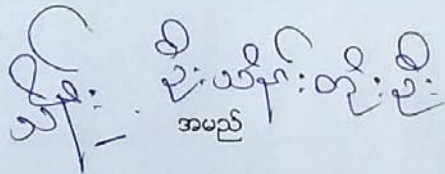 သိန်း ဦးသိန်းတိုးဦး
အမည်